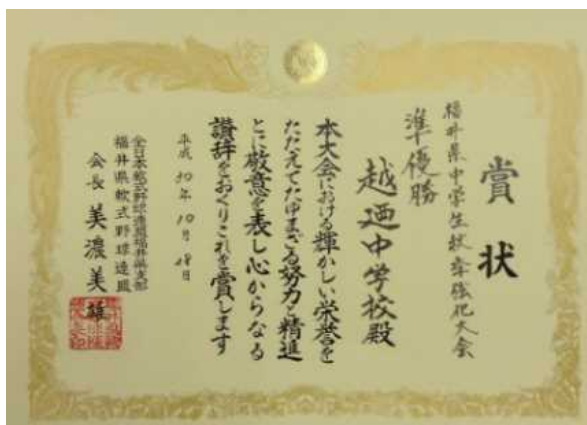 賞状
福井県中学生秋季強化大会
準優勝
越廼中学校殿
本大会における輝かしい栄誉を
たたえてたゆまざる努力と精進
とに敬意を表し心からなる
讃辞をおくりこれを賞します
平成30年10月 日
全日本軟式野球連盟福井県支部
福井県軟式野球連盟
会長 美濃美雄